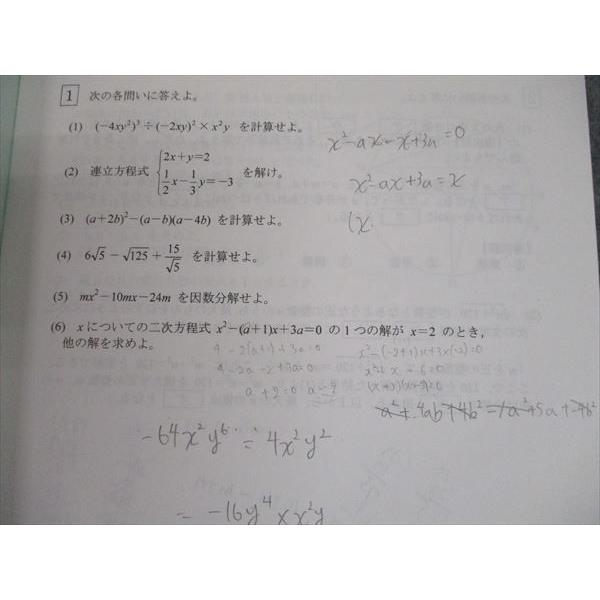 1 次の各問いに答えよ。
(1) (−4xy²)³÷(−2xy)²×x²y を計算せよ。
(2) 連立方程式 { 2x+y=2
1/2x−1/3y=−3 を解け。
(3) (a+2b)²−(a−b)(a−4b) を計算せよ。
(4) 6√5 − √125 + 15/√5 を計算せよ。
(5) mx²−10mx−24m を因数分解せよ。
(6) xについての二次方程式 x²−(a+1)x+3a=0 の1つの解が x=2 のとき,
他の解を求めよ。
x²−ax−x+3a=0
x²−ax+3a=x
(x
4−2(a+1)+3a=0
4−2a−2+3a=0
a+2=0
x²−(−2+1)x+3×(−2)=0
x²+x−6=0
−64x²y⁶÷4x²y²
=−16y⁴×x²y